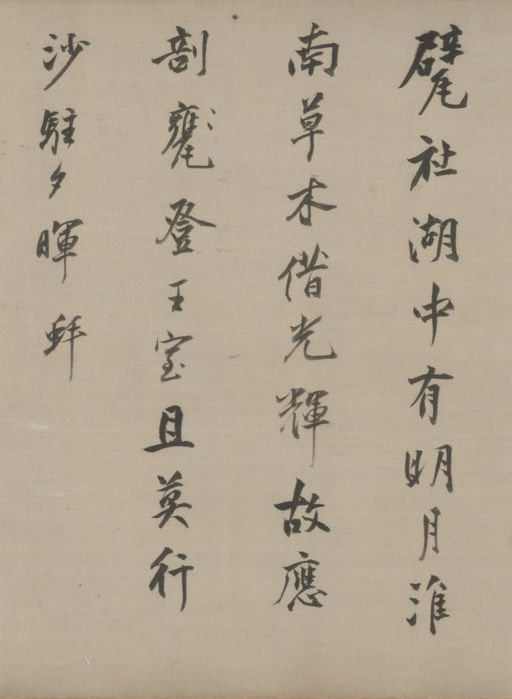 甓社湖中有明月淮
南草木借光輝故應
剖甕登王室且莫行
沙駐夕暉蚌